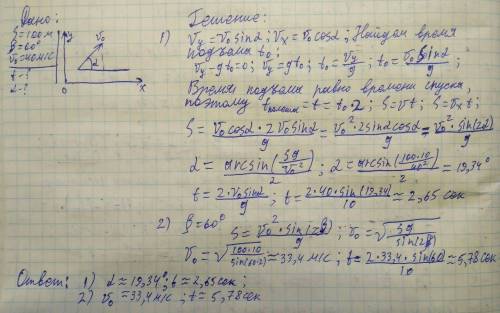 Дано:
S=100м
β=60°
v₀=40м/с
t-?
α-?
y
v₀
α
0
x
Решение:
1) Vy=V₀sinα; Vx=V₀cosα; Найдем время
подъема t₀:
Vy-gt₀=0; Vy=gt₀; t₀=Vy/g; t₀=V₀sinα/g;
Время подъема равно времени спуска,
поэтому t=t₀·2; S=Vt; S=Vxt;
S=V₀cosα·2V₀sinα/g=V₀²·2sinαcosα/g=V₀²·sin(2α)/g
α=arcsin(Sg/V₀²)/2; α=arcsin(100·10/40²)/2=19,34°
t=2·V₀sinα/g; t=2·40·sin(19,34)/10≈2,65 сек
2) β=60° S=V₀²·sin(2β)/g; V₀=√(Sg/sin(2β))
V₀=√(100·10/sin(60·2))≈33,4 м/с; t=2·33,4·sin(60)/10≈5,78сек
Ответ: 1) α≈19,34°; t≈2,65сек;
2) V₀≈33,4м/с; t≈5,78сек